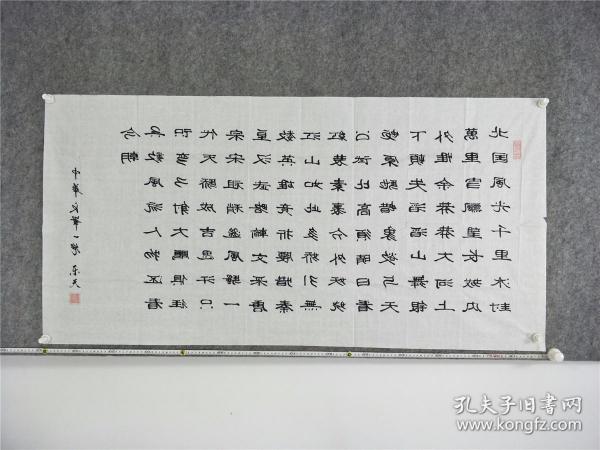 北国風光千里冰封
萬里雪飄望長城内
外惟余莽莽大河上
下頓失滔滔山舞银
蛇原馳蜡象欲与天
公试比高須晴日看
红装素裹分外妖娆
江山如此多娇引無
数英雄竞折腰惜秦
皇汉武略輸文采唐
宗宋祖稍遜風騷一
代天驕成吉思汗只
识弯弓射大雕俱往
矣数風流人物还看
今朝
孔夫子旧书网
www.kongfz.com